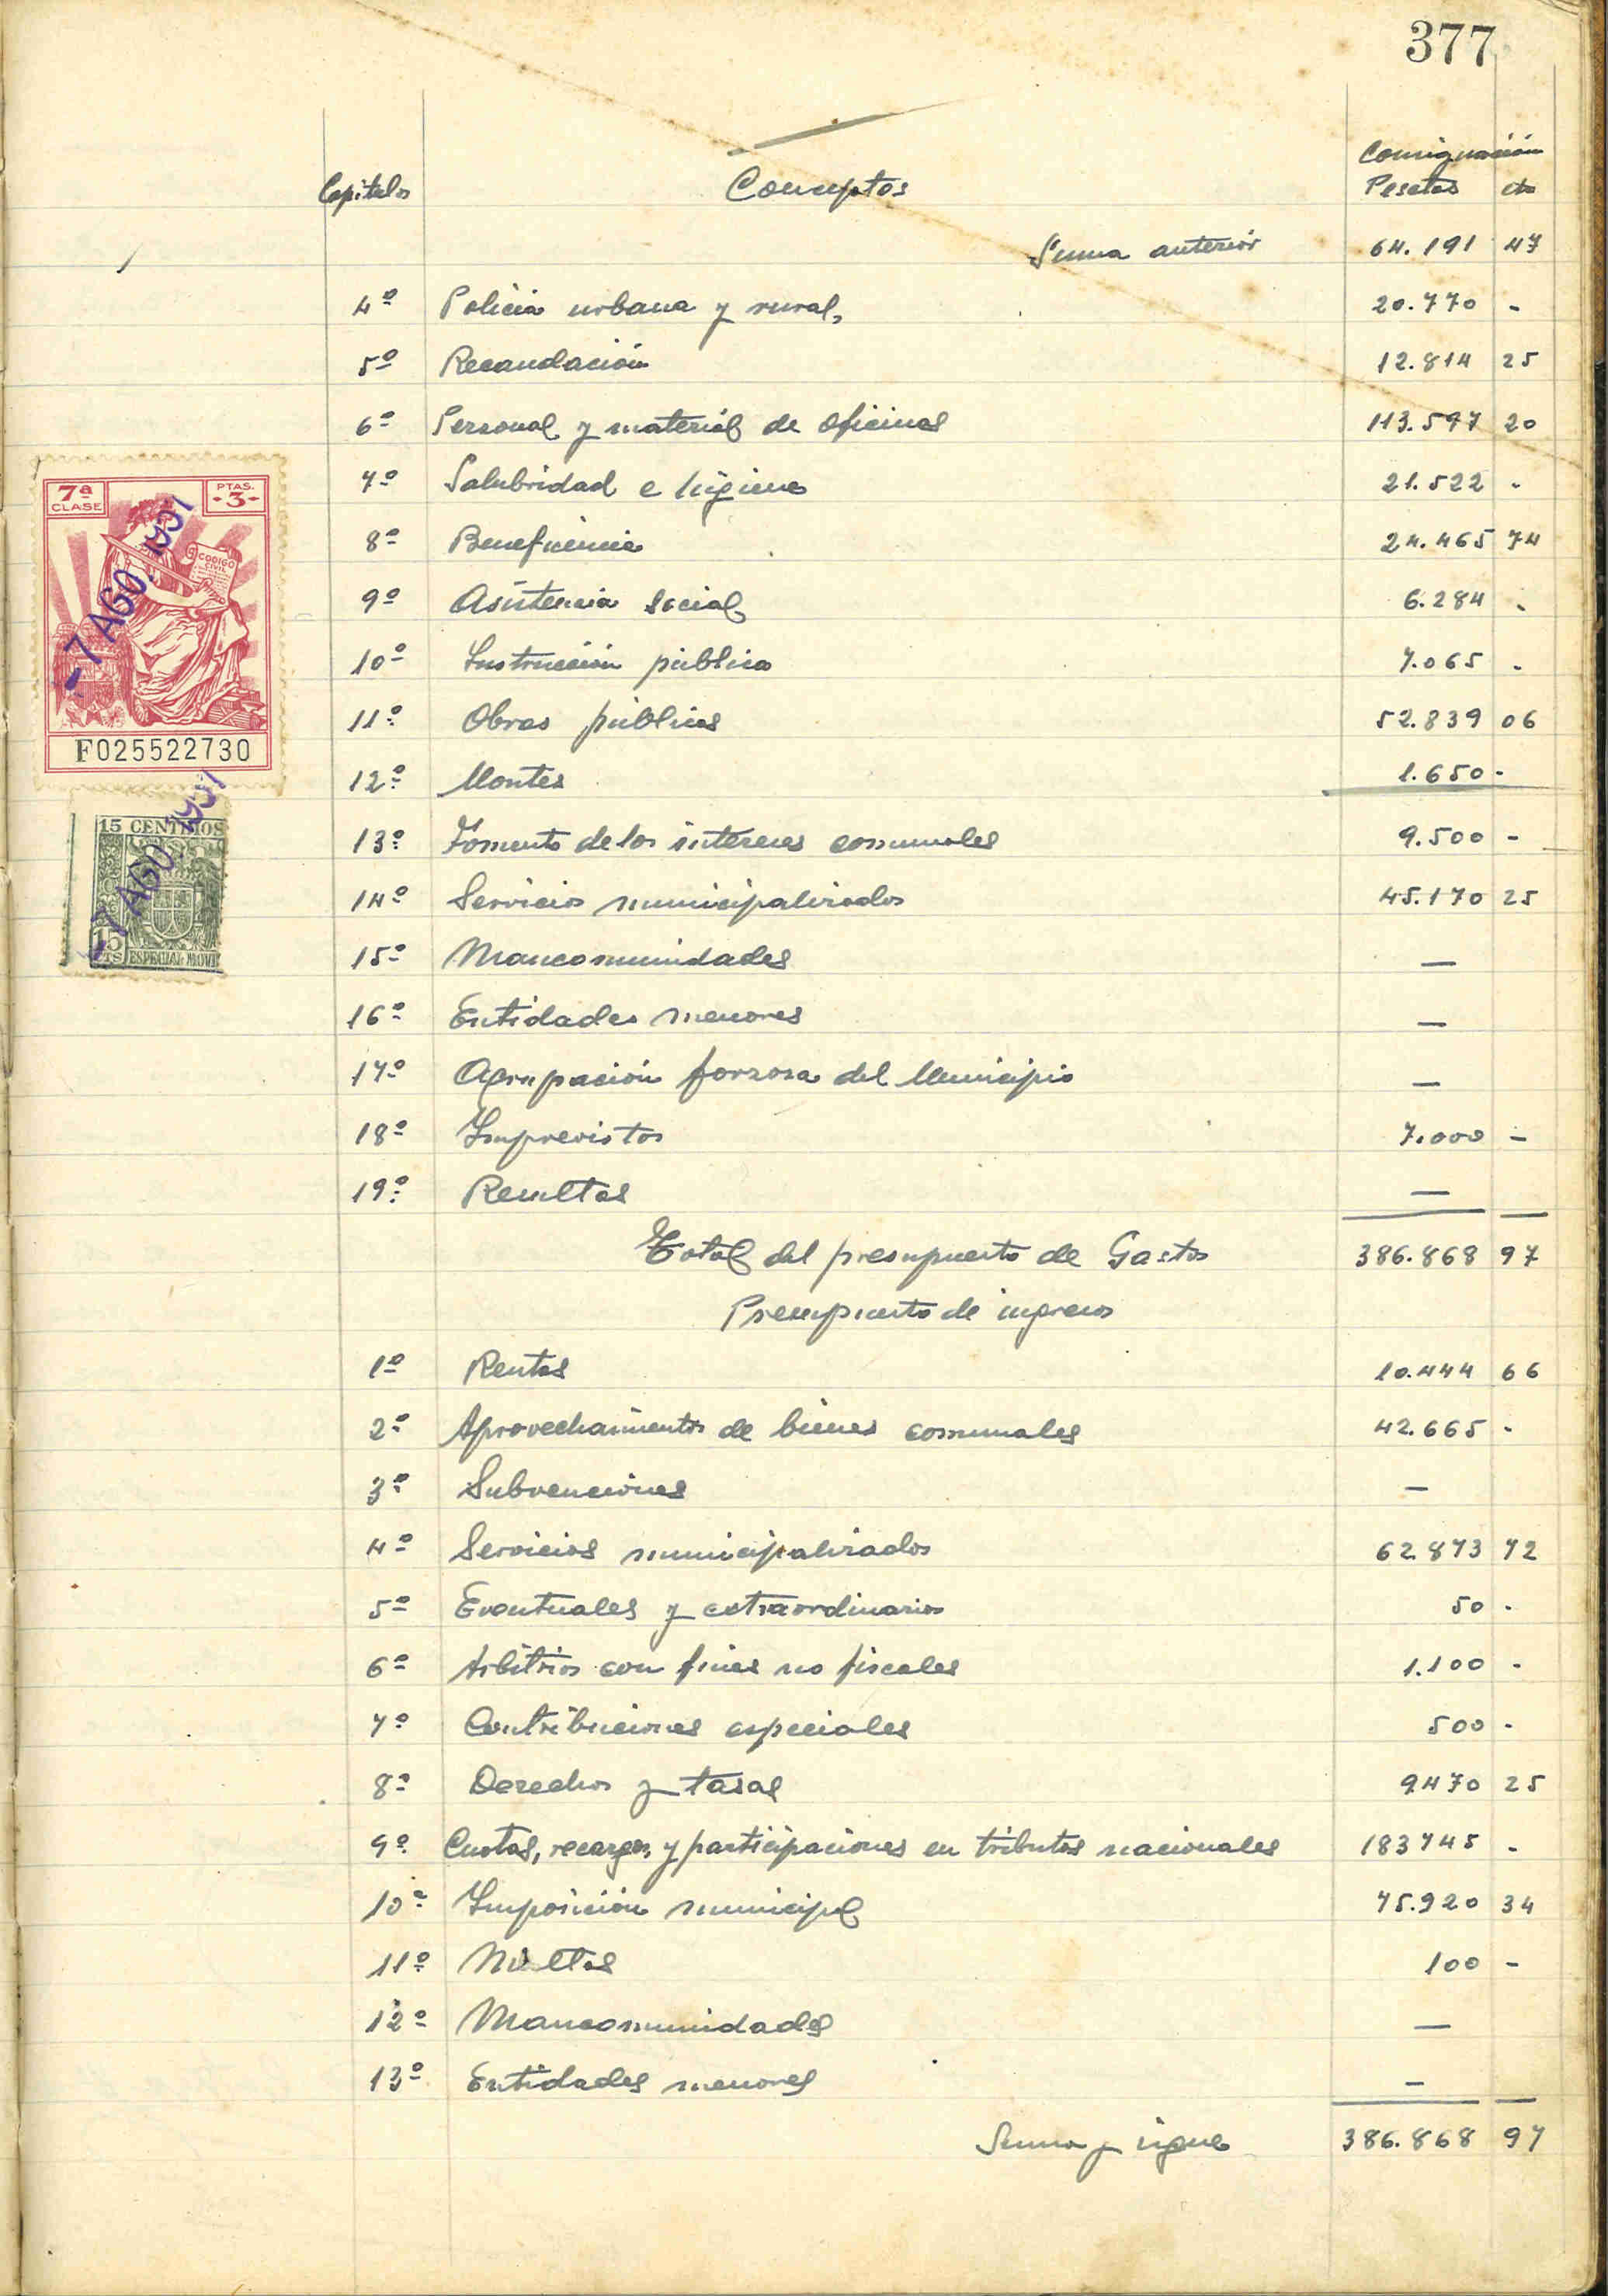 377
Consignación
Capitulos Conceptos Pesetas cts
Suma anterior 64.191 47
4º Policia urbana y rural, 20.770 -
5º Recaudación 12.814 25
6º Personal y material de oficinas 113.597 20
7º Salubridad e higiene 21.522 -
8º Beneficencia 24.465 74
9º Asistencia social 6.284 .
10º Instrucción pública 7.065 .
11º Obras públicas 52.839 06
12º Montes 1.650 -
13º Fomento de los intereses comunales 9.500 -
14º Servicios municipalizados 45.170 25
15º Mancomunidades —
16º Entidades menores —
17º Agrupación forzosa del Municipio —
18º Imprevistos 7.000 -
19º Resultas —
Total del presupuesto de Gastos 386.868 97
Presupuesto de ingresos
1º Rentas 10.444 66
2º Aprovechamientos de bienes comunales 42.665 -
3º Subvenciones —
4º Servicios municipalizados 62.873 72
5º Eventuales y extraordinarios 50 -
6º Arbitrios con fines no fiscales 1.100 -
7º Contribuciones especiales 500 -
8º Derechos y tasas 9470 25
9º Cuotas, recargos, y participaciones en tributos nacionales 183745 -
10º Imposición municipal 75.920 34
11º Multas 100 -
12º Mancomunidades —
13º Entidades menores —
Suma y sigue 386.868 97
7ª CLASE
PTAS. -3-
CODIGO CIVIL
-7 AGO. 1951
F025522730
15 CENTIMOS
-7 AGO. 1951
15 CTS
ESPECIAL MOVIL